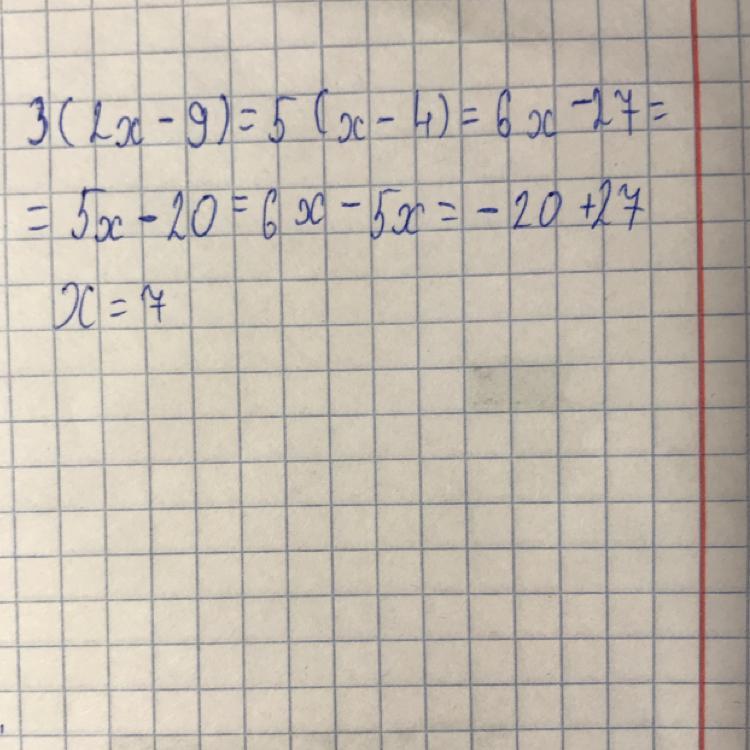 3(2x - 9) = 5 (x - 4) = 6x - 27 =
= 5x - 20 = 6x - 5x = - 20 + 27
x = 7